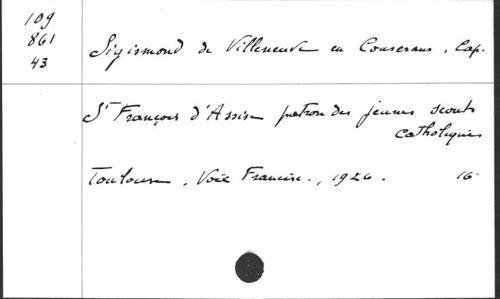 109
861
43
Sigismond de Villeneuve en Couserans, Cap.
St François d'Assise patron des jeunes scouts
catholiques
Toulouse, Voix Francisc., 1926. 16